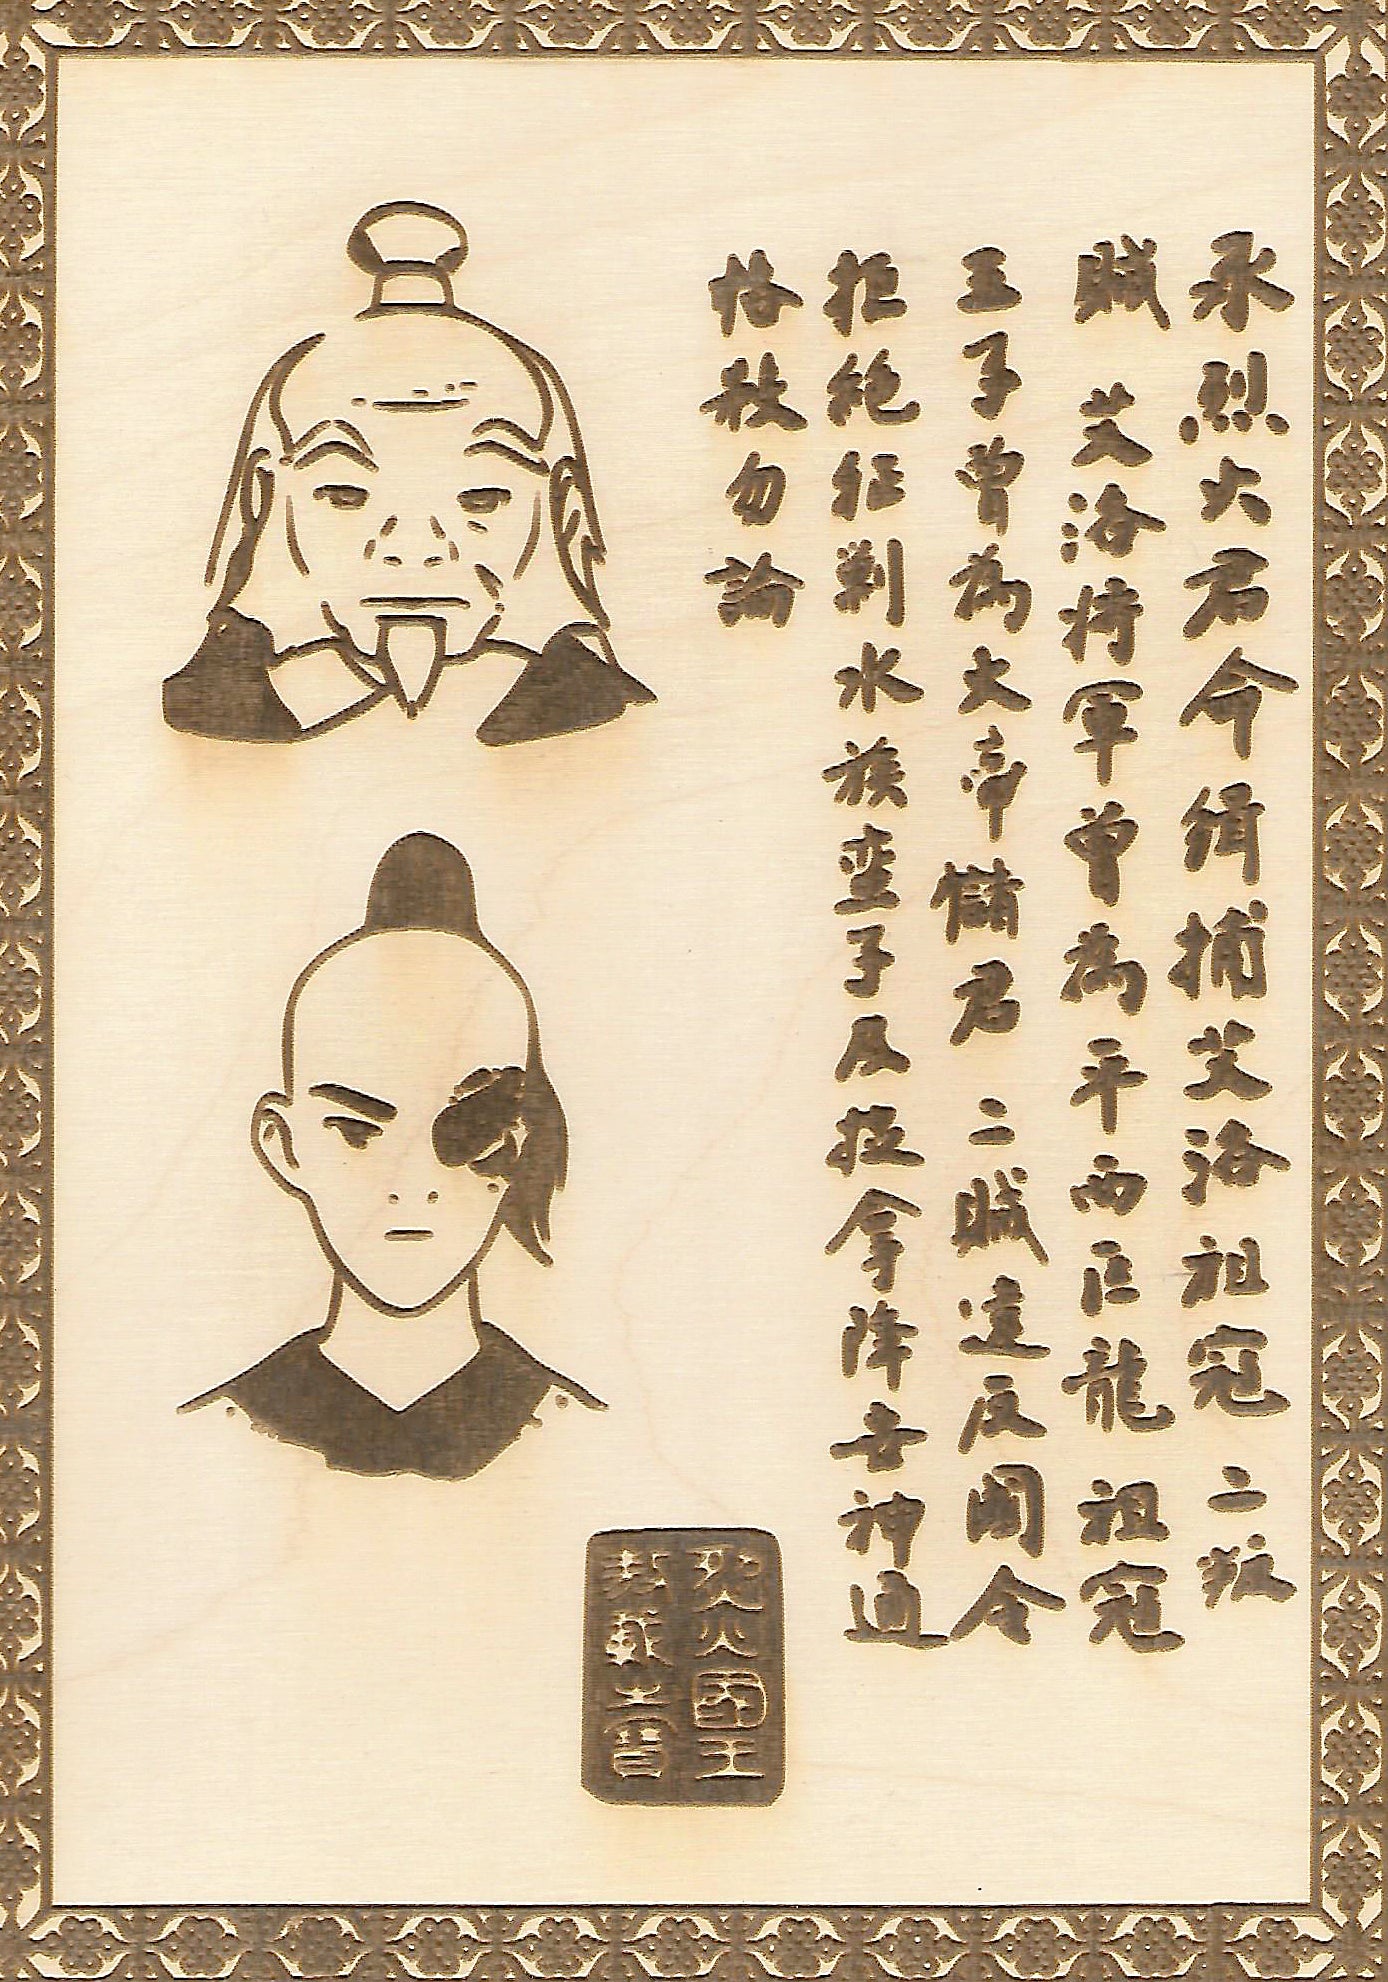 承烈火君令緝捕艾洛祖寇二叛
賊 艾洛將軍曾為平西巨龍 祖寇
王子曾為大帝儲君 二賊違反閫令
拒絕征剿水族蛮子及捉拿降世神通
格殺勿論
烈火國王
之